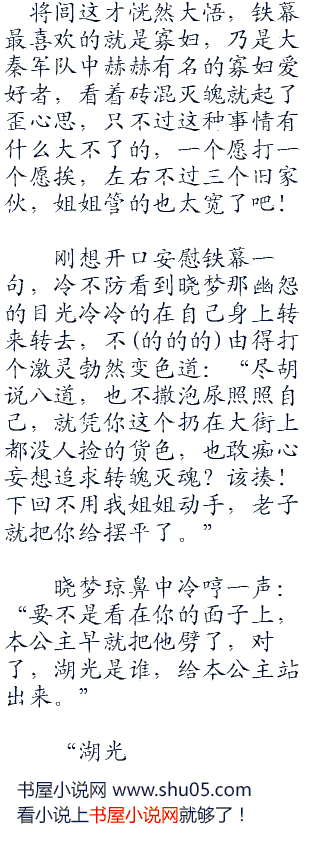 将闾这才恍然大悟，铁幕
最喜欢的就是寡妇，乃是大
秦军队中赫赫有名的寡妇爱
好者，看着砖混灭魄就起了
歪心思，只不过这种事情有
什么大不了的，一个愿打一
个愿挨，左右不过三个旧家
伙，姐姐管的也太宽了吧！
刚想开口安慰铁幕一
句，冷不防看到晓梦那幽怨
的目光冷冷的在自己身上转
来转去，不(的的的)由得打
个激灵勃然变色道：“尽胡
说八道，也不撒泡尿照照自
己，就凭你这个扔在大街上
都没人捡的货色，也敢痴心
妄想追求转魄灭魂？该揍！
下回不用我姐姐动手，老子
就把你给摆平了。”
晓梦琼鼻中冷哼一声：
“要不是看在你的面子上，
本公主早就把他劈了，对
了，湖光是谁，给本公主站
出来。”
“湖光
书屋小说网 www.shu05.com
看小说上书屋小说网就够了！